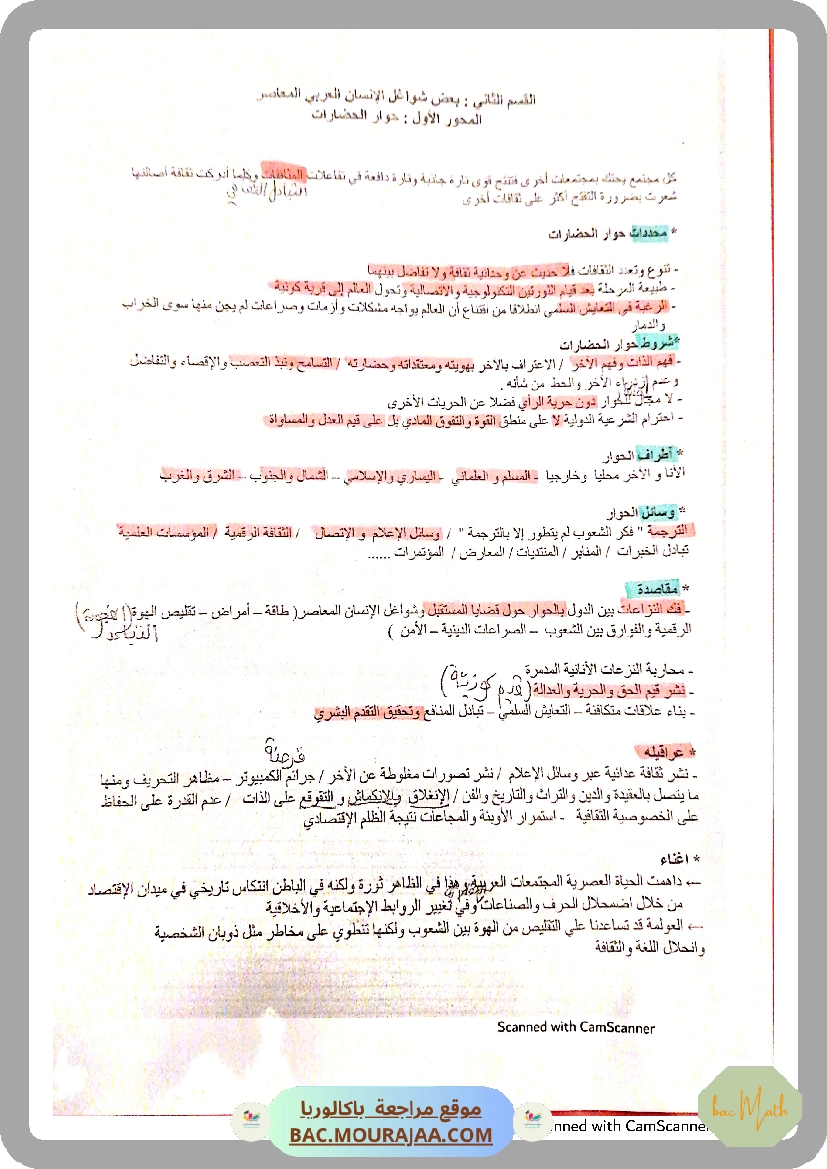 القسم الثاني : بعض شواغل الإنسان العربي المعاصر
المحور الأول : حوار الحضارات
كل مجتمع يحتك بمجتمعات أخرى فتنتج قوى تارة جاذبة وتارة دافعة في تفاعلات المثاقفات وكلما أدركت ثقافة أصالتها
التبادل الثقافي
شعرت بضرورة التفتح أكثر على ثقافات أخرى
* محددات حوار الحضارات
- تنوع وتعدد الثقافات فلا حديث عن وحدانية ثقافة ولا تفاضل بينهما
- طبيعة المرحلة بعد قيام الثورتين التكنولوجية والاتصالية وتحول العالم إلى قرية كونية
- الرغبة في التعايش السلمي انطلاقا من اقتناع أن العالم يواجه مشكلات وأزمات وصراعات لم يجن منها سوى الخراب
والدمار
*شروط حوار الحضارات
- فهم الذات وفهم الآخر / الاعتراف بالآخر بهويته ومعتقداته وحضارته / التسامح ونبذ التعصب والإقصاء والتفاضل
وعدم إزدراء الآخر والحط من شأنه .
- لا مجال للحوار دون حرية الرأي فضلا عن الحريات الأخرى
- احترام الشرعية الدولية لا على منطق القوة والتفوق المادي بل على قيم العدل والمساواة
* أطراف الحوار
الأنا و الآخر محليا وخارجيا - المسلم و العلماني - اليساري والإسلامي – الشمال والجنوب – الشرق والغرب
* وسائل الحوار
الترجمة " فكر الشعوب لم يتطور إلا بالترجمة " / وسائل الإعلام و الإتصال / الثقافة الرقمية / المؤسسات العلمية
تبادل الخبرات / المنابر / المنتديات / المعارض / المؤتمرات ......
* مقاصدة
- فك النزاعات بين الدول بالحوار حول قضايا المستقبل وشواغل الإنسان المعاصر( طاقة – أمراض – تقليص الهوة
الرقمية والفوارق بين الشعوب – الصراعات الدينية – الأمن )
- محاربة النزعات الأنانية المدمرة
- نشر قيم الحق والحرية والعدالة (قيم كونية)
- بناء علاقات متكافئة – التعايش السلمي – تبادل المنافع وتحقيق التقدم البشري
* عراقيله
قرصنة
- نشر ثقافة عدائية عبر وسائل الاعلام / نشر تصورات مغلوطة عن الآخر / جرائم الكمبيوتر – مظاهر التحريف ومنها
ما يتصل بالعقيدة والدين والتراث والتاريخ والفن / الإنغلاق والإنكماش و التقوقع على الذات / عدم القدرة على الحفاظ
على الخصوصية الثقافية - استمرار الأوبئة والمجاعات نتيجة الظلم الإقتصادي
* اغناء
← داهمت الحياة العصرية المجتمعات العربية وهذا في الظاهر ثورة ولكنه في الباطن انتكاس تاريخي في ميدان الإقتصاد
من خلال اضمحلال الحرف والصناعات وفي تغيير الروابط الإجتماعية والأخلاقية
← العولمة قد تساعدنا على التقليص من الهوة بين الشعوب ولكنها تنطوي على مخاطر مثل ذوبان الشخصية
وانحلال اللغة والثقافة
Scanned with CamScanner
موقع مراجعة باكالوريا
BAC.MOURAJAA.COM
nned with CamScanner
bac Math